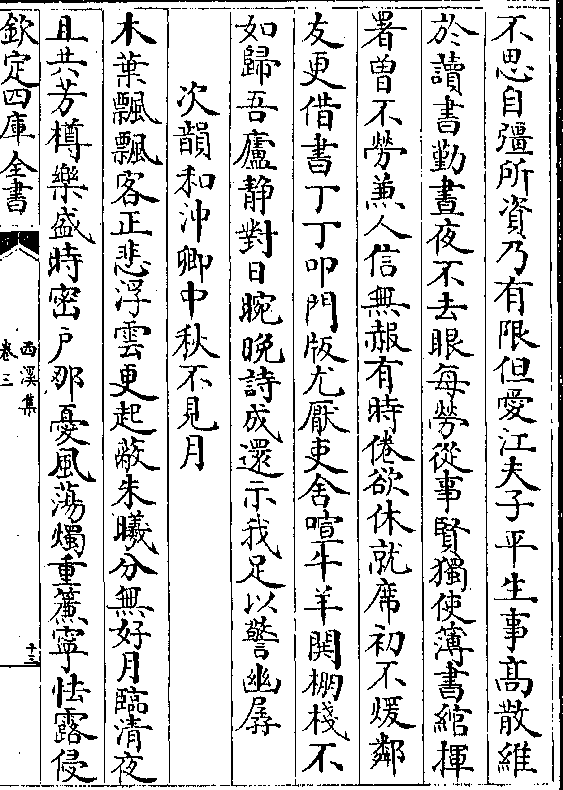 不思自彊所資乃有限但愛江夫子平生事髙散維
於讀書勤晝夜不去眼每勞從事賢獨使簿書綰揮
署曽不勞兼人信無赧有時倦欲休就席初不煖鄰
友更借書丁丁叩門版尤厭吏舍喧牛羊閧棚棧不
如歸吾廬靜對日晼晚詩成還示我足以警幽孱
次韻和沖卿中秋不見月
木葉飄飄客正悲浮雲更起蔽朱曦分無好月臨清夜
且共芳樽樂盛時密户那憂風蕩燭重簾寜怯露侵
欽定四庫全書
西溪集
卷三
十三